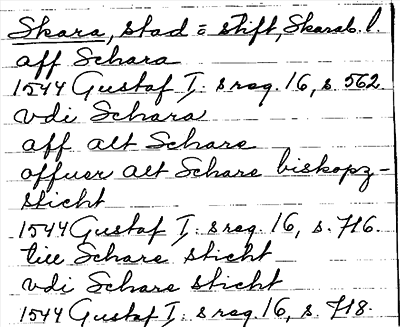 Skara, stad = stift, Skarab. l.
aff Schara
1544 Gustaf I: s reg. 16, s. 562.
vdi Schara
aff alt Schare
offuer alt Schare biskopz-
sticht
1544 Gustaf I: s reg. 16, s. 716.
till Schare sticht
vdi Schare sticht
1544 Gustaf I: s reg. 16, s. 718.